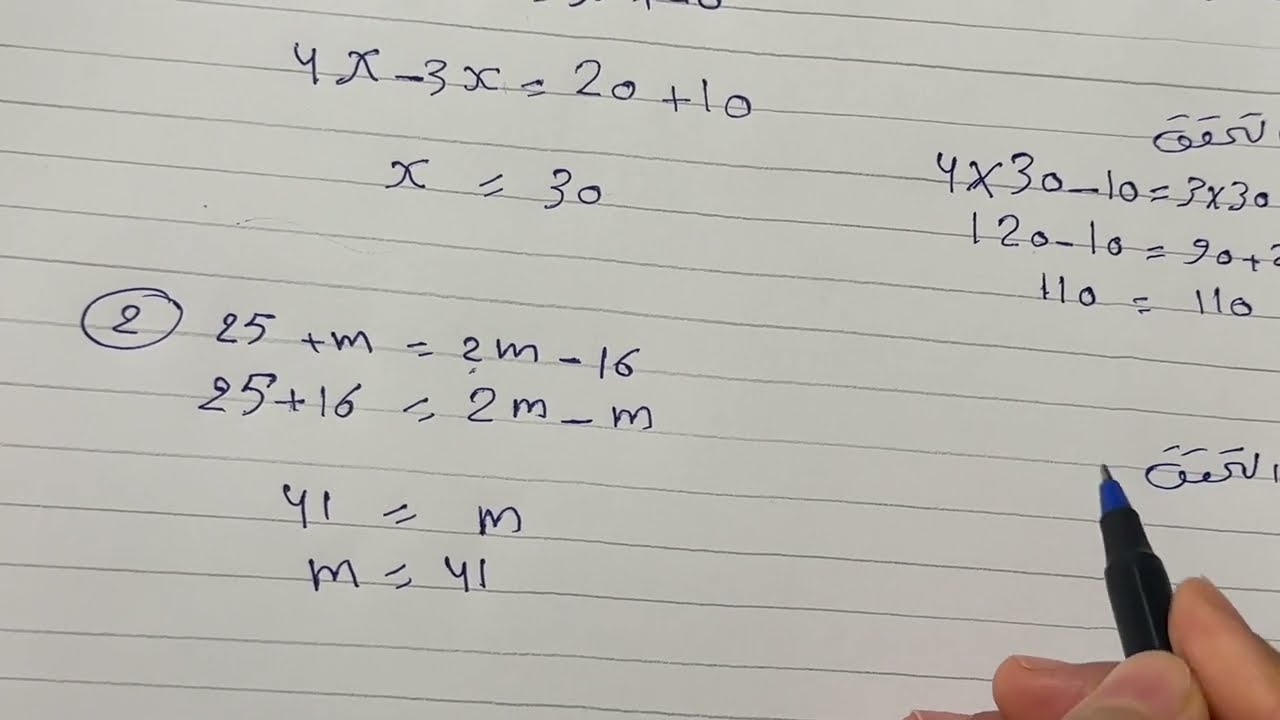 4x - 3x = 20 + 10
x = 30
التحقق
4 × 30 - 10 = 3 × 30
120 - 10 = 90 + 2
110 = 110
② 25 + m = 2m - 16
25 + 16 = 2m - m
41 = m
m = 41
التحقق